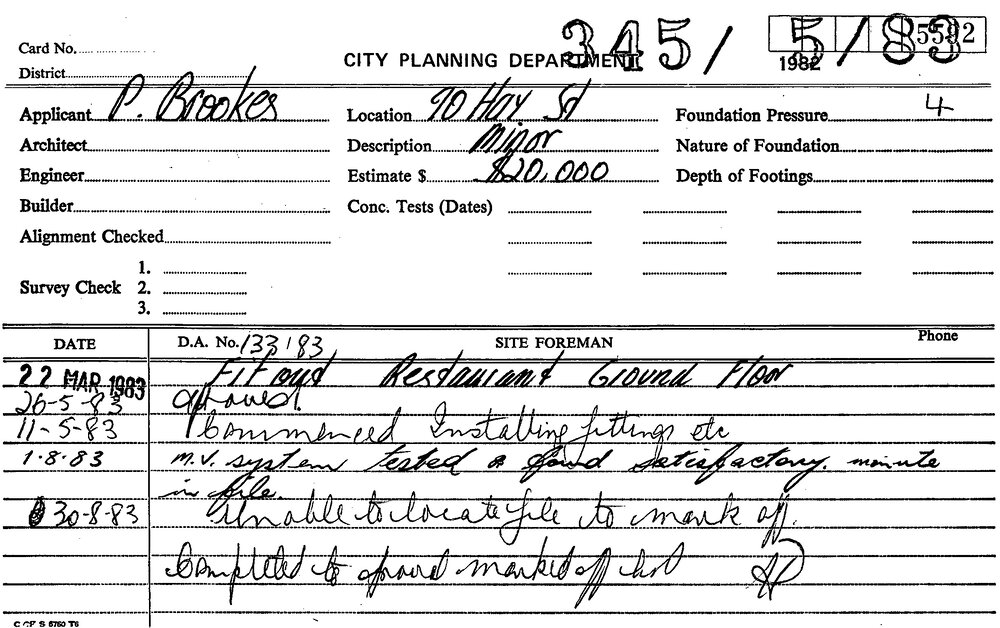 Card No.
345/ 5/83
5592
CITY PLANNING DEPARTMENT
1982
District
Applicant P. Brookes Location 90 Hay St Foundation Pressure 4
Architect Description Minor Nature of Foundation
Engineer Estimate $ $20,000 Depth of Footings
Builder Conc. Tests (Dates)
Alignment Checked
1.
Survey Check 2.
3.
DATE D.A. No. 133/83 SITE FOREMAN Phone
22 MAR 1983 Fit out Restaurant Ground Floor
26-5-83 approved.
11-5-83 Commenced Installing fittings etc
1.8.83 M.V. system tested & found satisfactory. minute
in file.
30-8-83 Unable to locate file to mark off.
Completed to marked off
C CF S 5750 T6